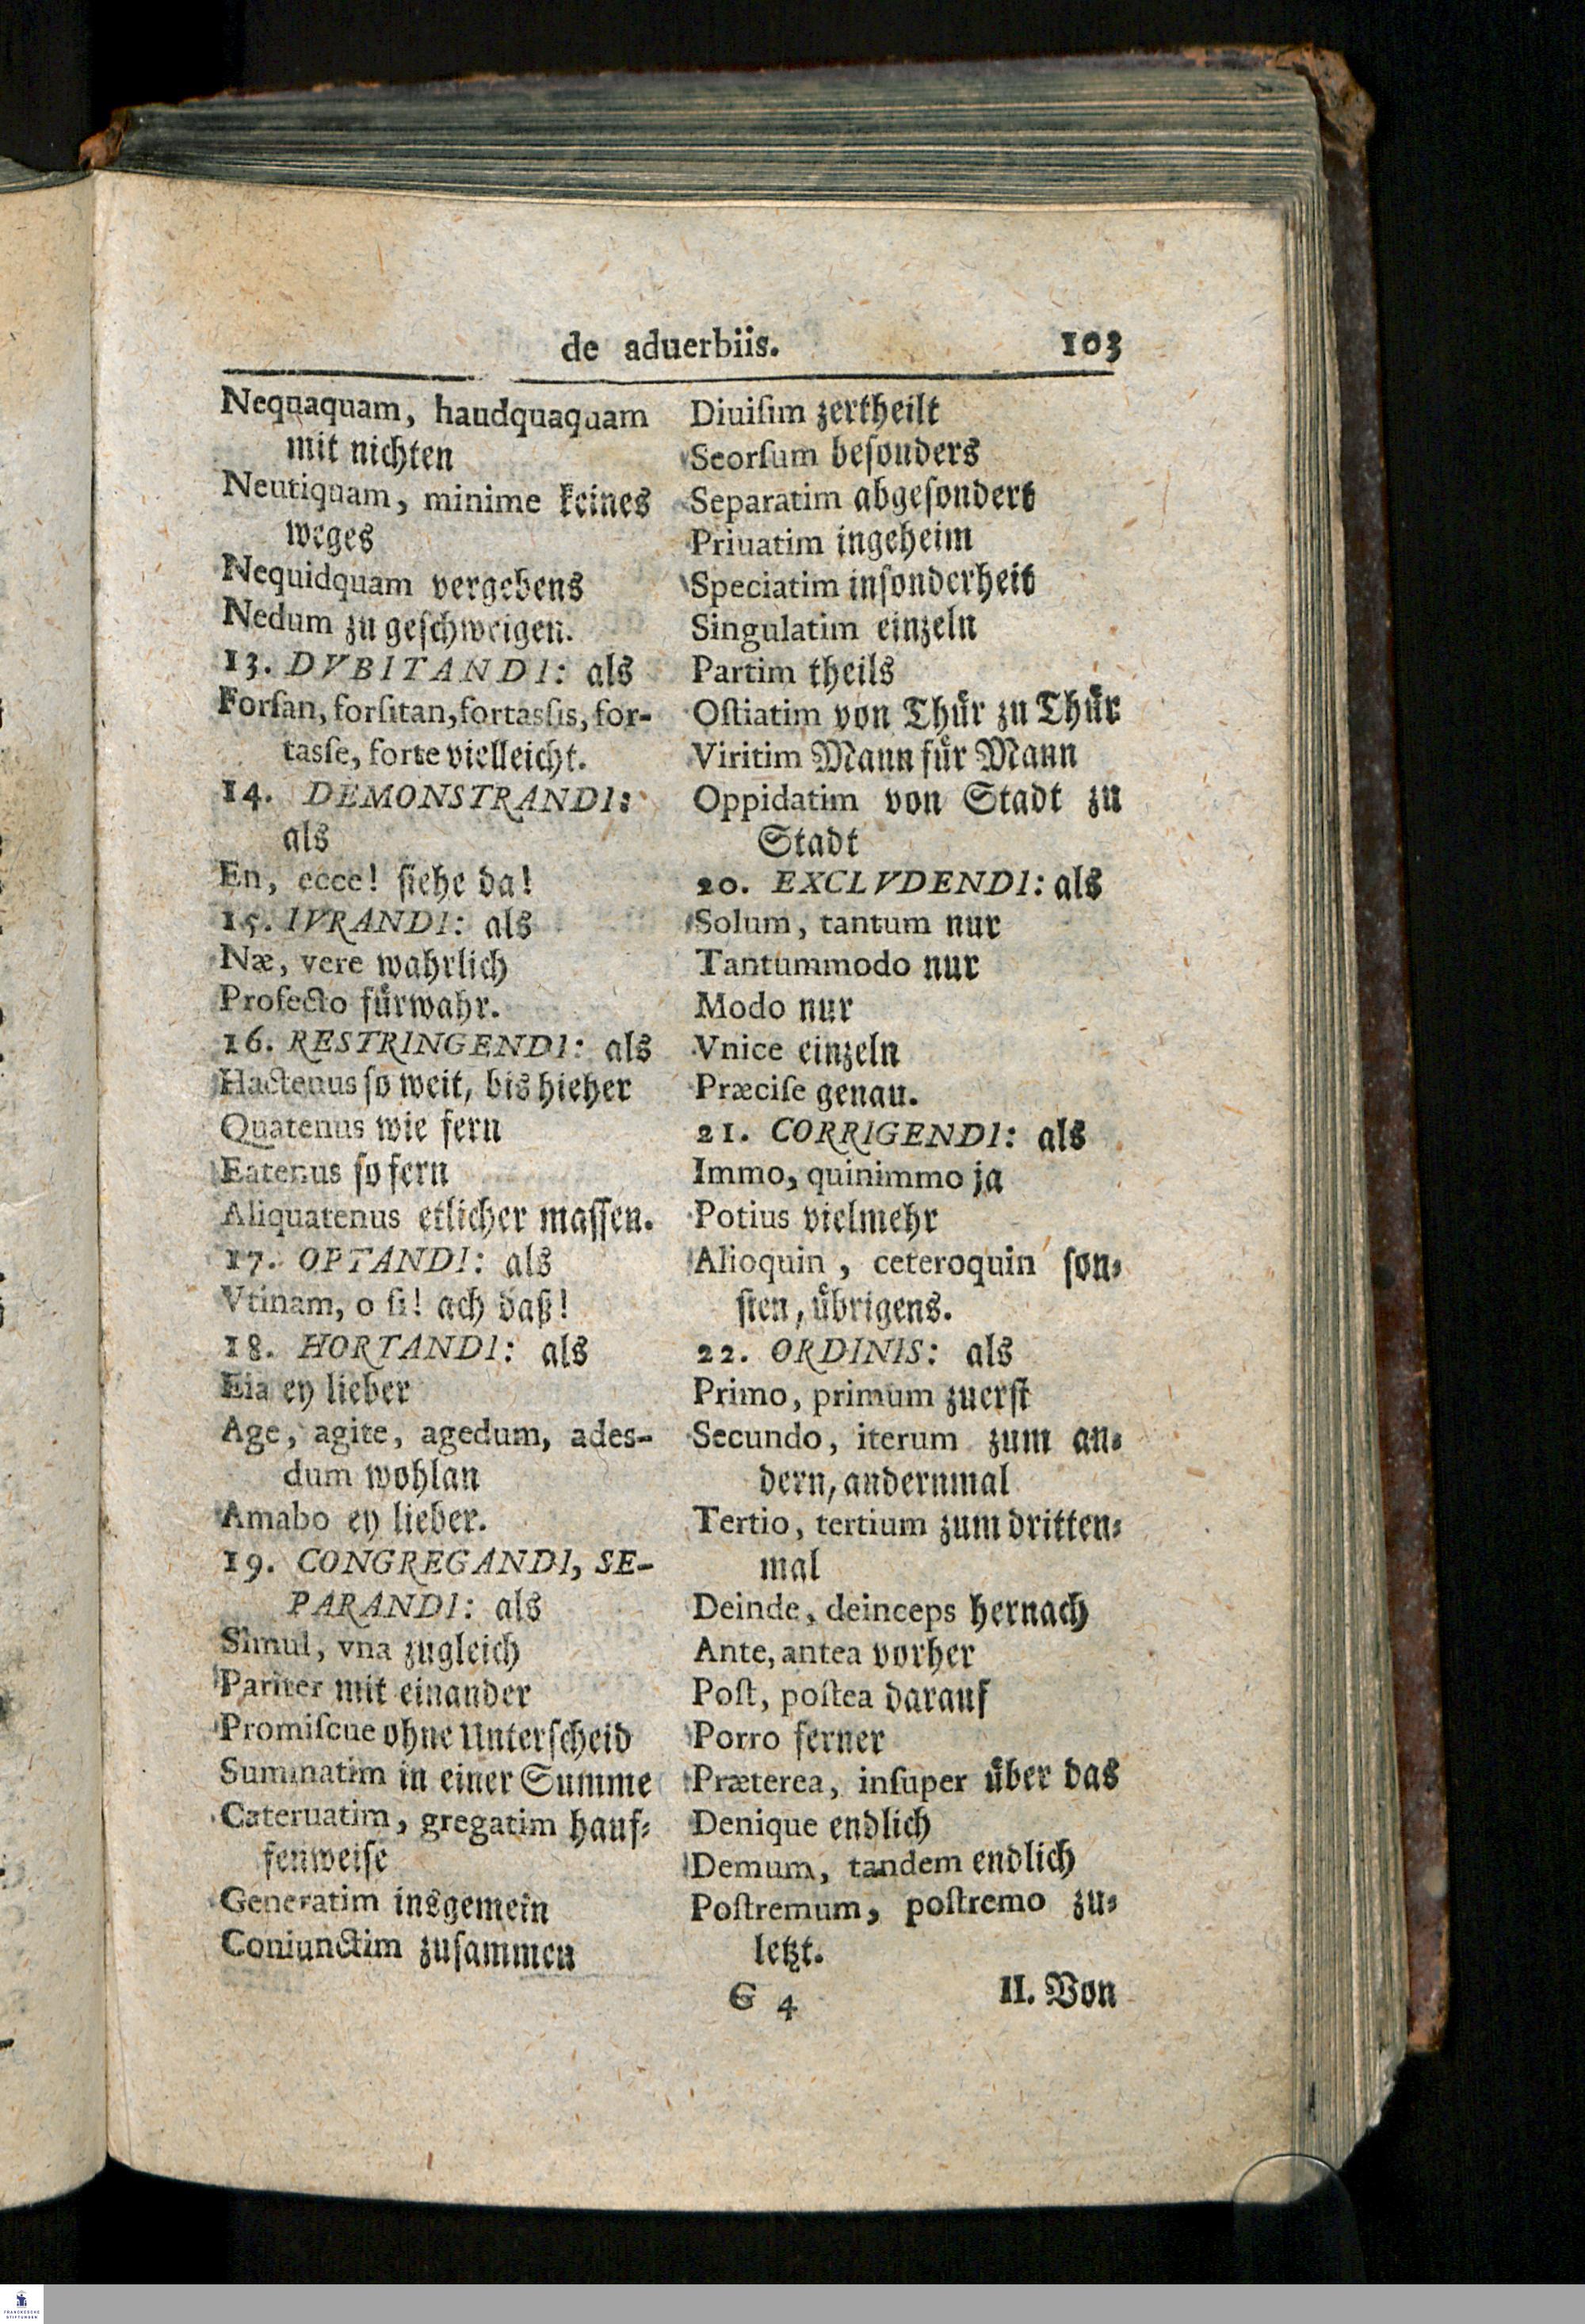 de aduerbiis. 103
Nequaquam, haudquaquam
mit nichten
Neutiquam, minime keines
weges
Nequidquam vergebens
Nedum zu geschweigen.
13. DVBITANDI: als
Forſan, forſitan, fortasſis, for-
tasſe, forte vielleicht.
14. DEMONSTRANDI:
als
En, ecce! siehe da!
15. IVRANDI: als
Næ, vere wahrlich
Profecto fürwahr.
16. RESTRINGENDI: als
Hactenus so weit, bis hieher
Quatenus wie fern
Eatenus so fern
Aliquatenus etlicher massen.
17. OPTANDI: als
Vtinam, o ſi! ach daß!
18. HORTANDI: als
Eia ey lieber
Age, agite, agedum, ades-
dum wohlan
Amabo ey lieber.
19. CONGREGANDI, SE-
PARANDI: als
Simul, vna zugleich
Pariter mit einander
Promiſcue ohne Unterscheid
Summatim in einer Summe
Cateruatim, gregatim hauf-
fenweise
Generatim insgemein
Coniunctim zusammen
Diuiſim zertheilt
Seorſum besonders
Separatim abgesondert
Priuatim ingeheim
Speciatim insonderheit
Singulatim einzeln
Partim theils
Oſtiatim von Thür zu Thür
Viritim Mann für Mann
Oppidatim von Stadt zu
Stadt
20. EXCLVDENDI: als
Solum, tantum nur
Tantummodo nur
Modo nur
Vnice einzeln
Præciſe genau.
21. CORRIGENDI: als
Immo, quinimmo ja
Potius vielmehr
Alioquin, ceteroquin son-
sten, übrigens.
22. ORDINIS: als
Primo, primum zuerst
Secundo, iterum zum an-
dern, andernmal
Tertio, tertium zum dritten-
mal
Deinde, deinceps hernach
Ante, antea vorher
Poſt, poſtea darauf
Porro ferner
Præterea, inſuper über das
Denique endlich
Demum, tandem endlich
Poſtremum, poſtremo zu-
letzt.
G 4 II. Von
FRANCKESCHE
STIFTUNGEN